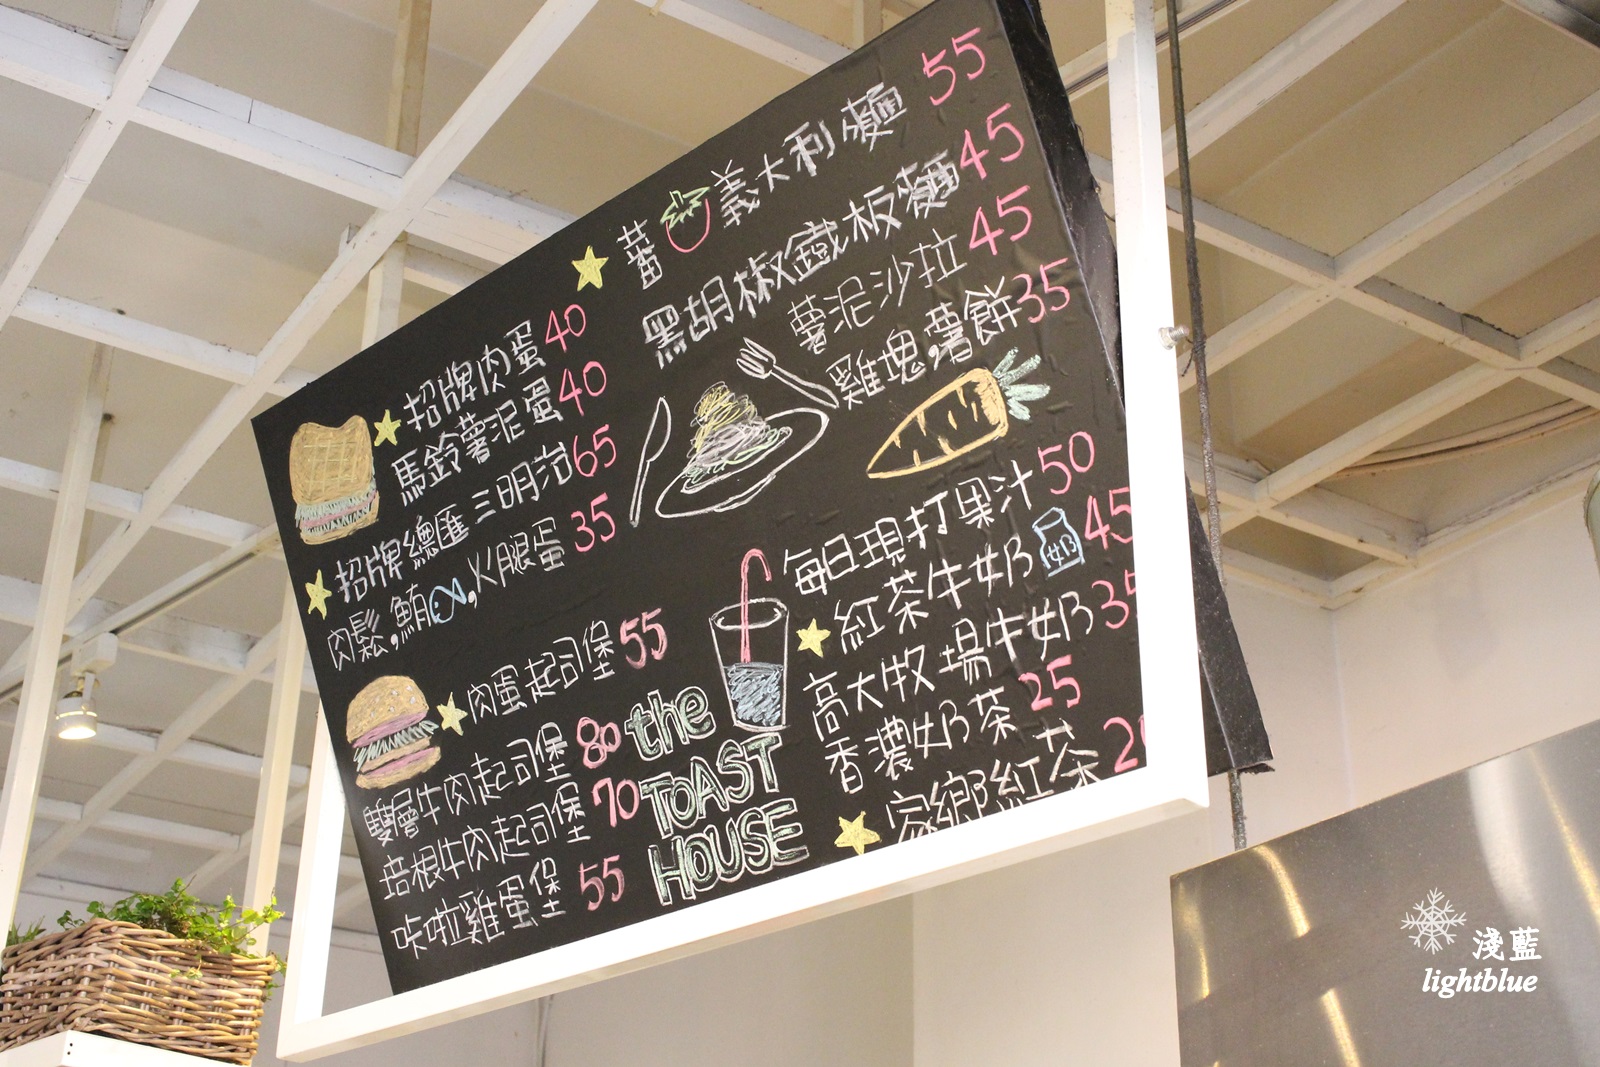 招牌肉蛋 40
馬鈴薯泥蛋 40
招牌總匯三明治 65
肉鬆,鮪,火腿蛋 35
肉蛋起司堡 55
雙層牛肉起司堡 80
培根牛肉起司堡 70
咔啦雞蛋堡 55
the
TOAST
HOUSE
蕃 義大利麵 55
黑胡椒鐵板麵 45
薯泥沙拉 45
雞塊,薯餅 35
每日現打果汁 50
紅茶牛奶 45
奶
高大牧場牛奶 35
香濃奶茶 25
家鄉紅茶 20
淺藍
lightblue